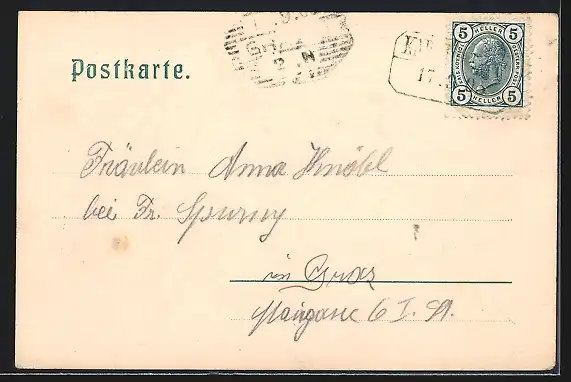 Postkarte.
5 HELLER 5
5 HELLER 5
17
Fräulein Anna Knöbl
bei Fr. Spurny
in Graz
6 I. St.